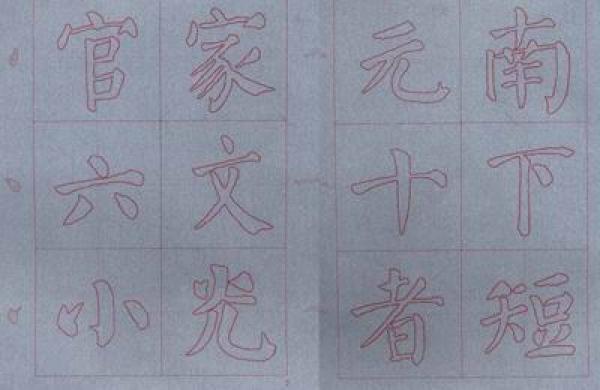 官家元南
六文十下
小光者短